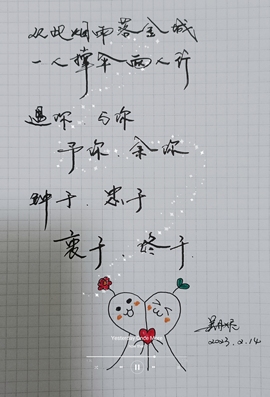 从此烟雨落金城
一人撑伞两人行
遇你、与你
予你、余你
钟于、忠于
衷于、终于
2023.2.14
Yesterday Once More